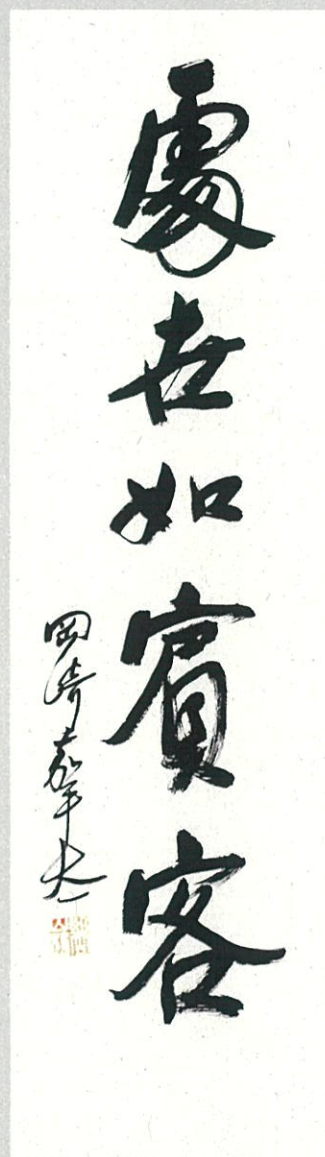 處世如賓客
岡崎嘉平太